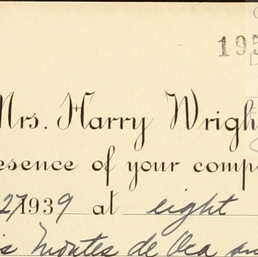 195
Mrs. Harry Wrigh
esence of your comp
27 1939 at eight
is Montes de Oca an